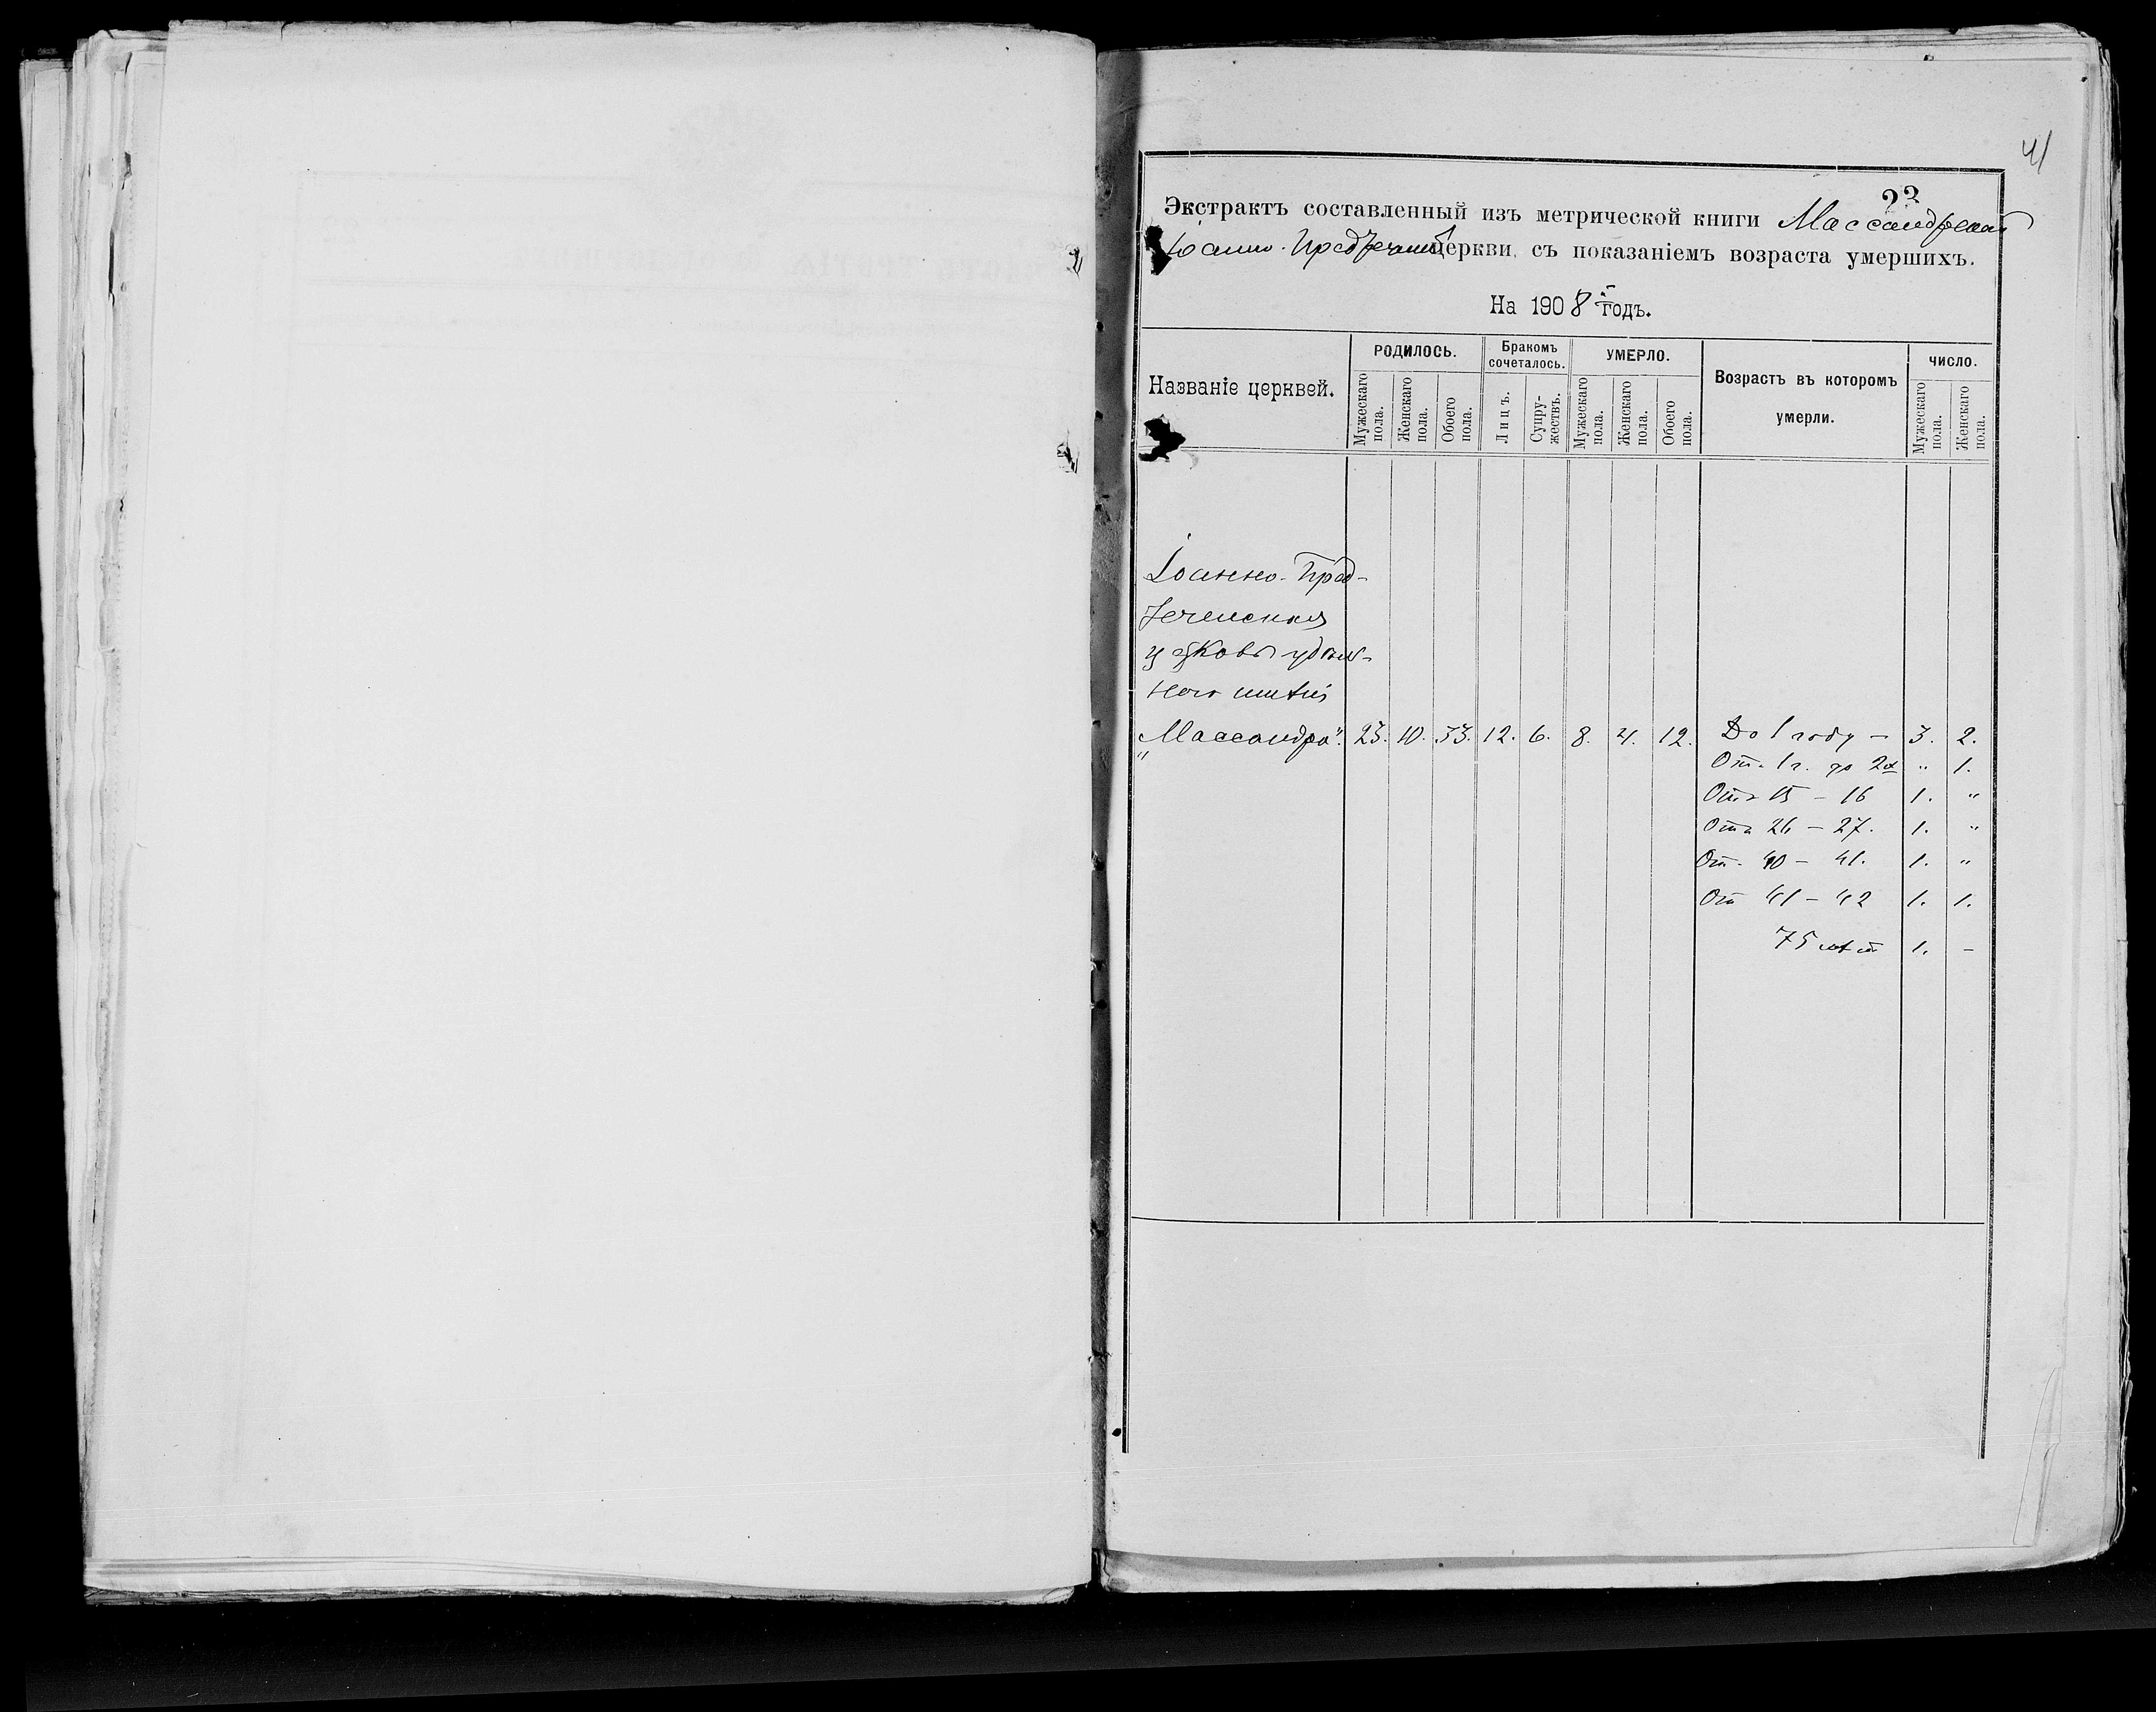 41
23
Экстрактъ составленный изъ метрической книги Массандрской
Іоанно-Предтечен. церкви, съ показаніемъ возраста умершихъ.
На 1908 годъ.
Названіе церквей.
РОДИЛОСЬ.
Бракомъ сочеталось.
УМЕРЛО.
Возрастъ въ которомъ умерли.
ЧИСЛО.
Мужескаго пола.
Женскаго пола.
Обоего пола.
Лицъ.
Супружествъ.
Мужескаго пола.
Женскаго пола.
Обоего пола.
Мужескаго пола.
Женскаго пола.
Іоанно-Пред-
теченская
церковь удѣль-
наго имѣнія
„Массандра". 23. 10. 33. 12. 6. 8. 4. 12. До 1 году — 3. 2.
От. 1 г. до 2х " 1.
Отъ 15 — 16 1. "
Отъ 26 — 27. 1. "
От. 40 — 41. 1. "
От 41 — 42 1. 1.
75 лѣт 1. —